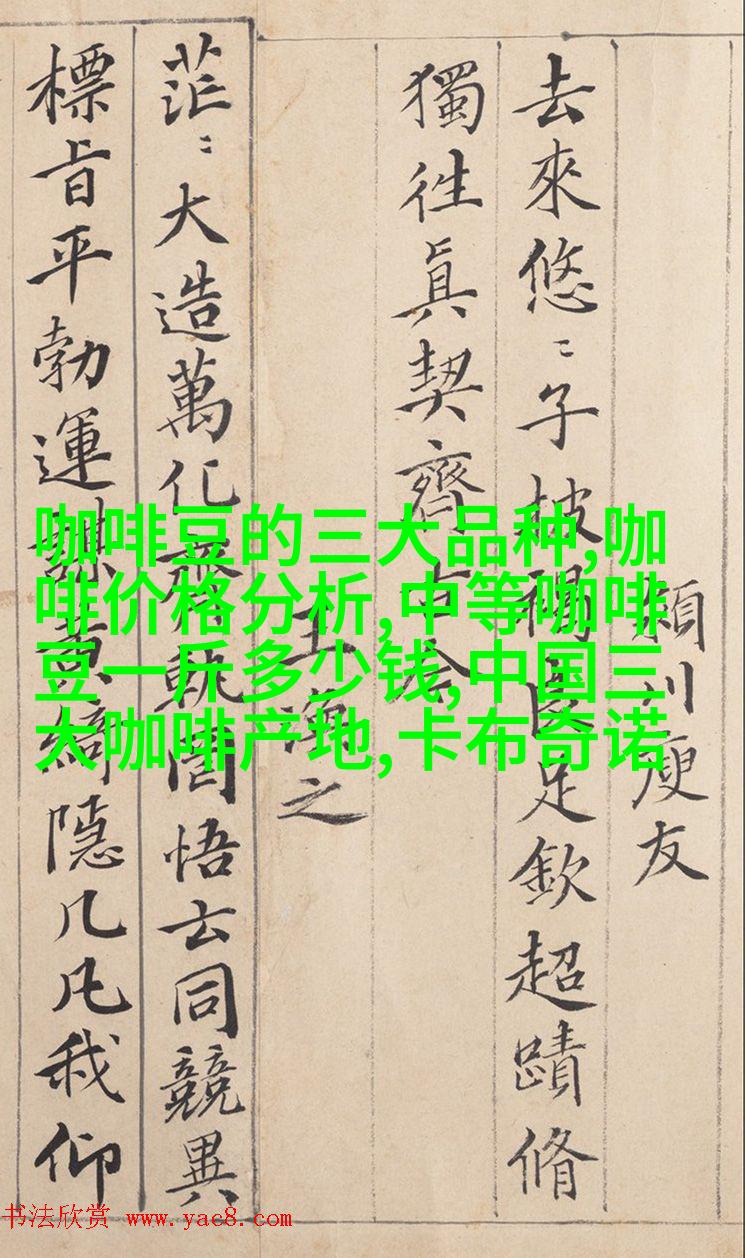 川庾友
去來悠〻子披褐良足欽超蹟脩
獨徃眞契齊古今
王渙之
茫〻大造萬化齊軌罔悟玄同競異
標旨平勃運謀黃綺隱几凡我仰
咖啡豆的三大品种,咖
啡价格分析,中等咖啡
豆一斤多少钱,中国三
大咖啡产地,卡布奇诺
书法欣赏 www.yac8.com